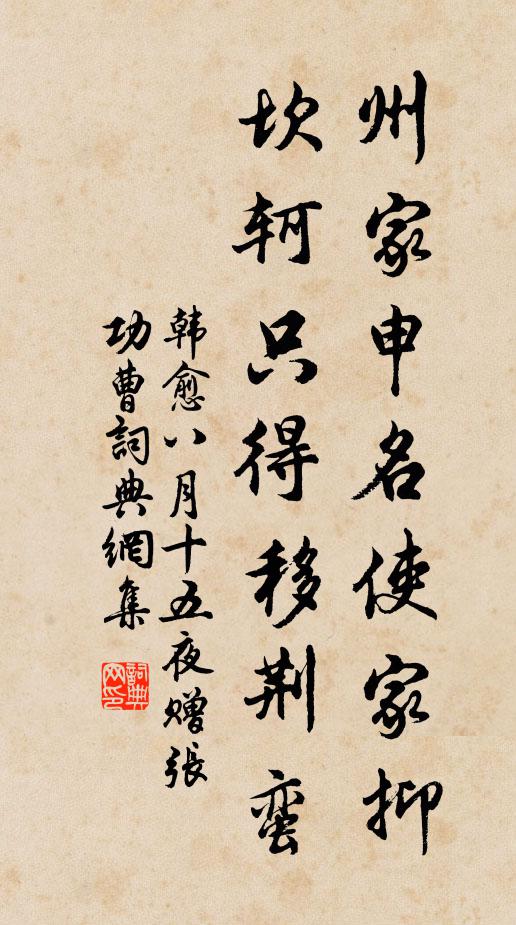 州家申名使家抑
坎軻只得移荆蛮
韩愈八月十五夜赠張
功曹詞典網集
詞典网印